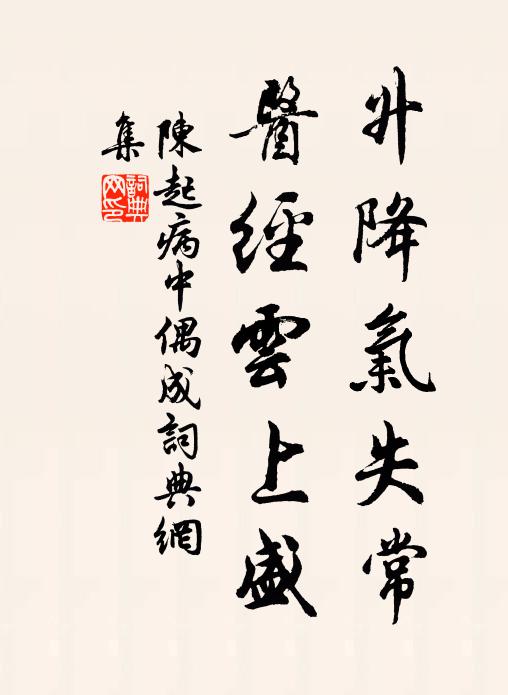 升降氣失常
醫經雲上盛
陳起病中偶成詞典網
集
詞典
网印